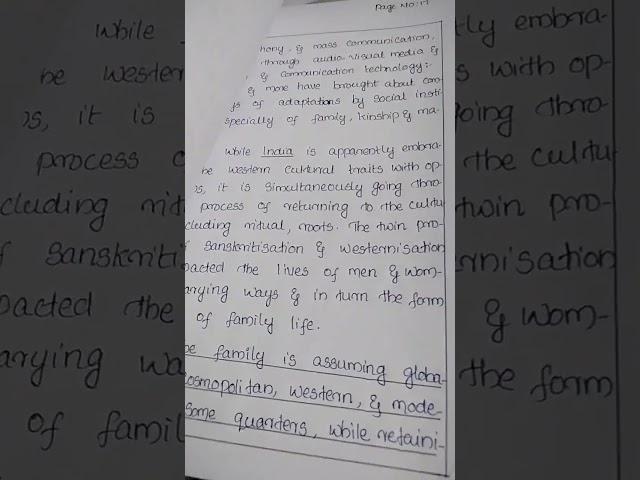 Page No: 17
hony, & mass communication,
through audio-visual media &
& communication technology:-
& more have brought about com
ys of adaptations by social insti
specially of family, kinship & ma
While India is apparently embra
be western cultural traits with op
os, it is simultaneously going thro
process of returning to the cultu
cluding ritual, roots. The twin pro-
f Sanskritisation & Westernisation
pacted the lives of men & wom-
arying ways & in turn the form
of family life.
be family is assuming globa-
cosmopolitan, western, & mode-
some quarters, while retaini-